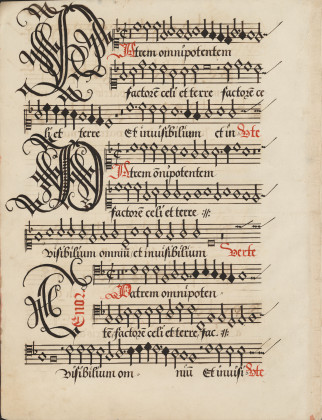 Patrem omnipotentem
factorem celi et terre factorem ce
li et terre Et inuisibilium et in Vte
Patrem õnipotentem
factorẽ celi et terre .ij.
visibilium omniũ et inuisibilium Verte
Tenor.
Patrem omnipoten-
tẽ factorẽ celi et terre, fac. .ij.
visibilium om- niũ Et inuisi Vte